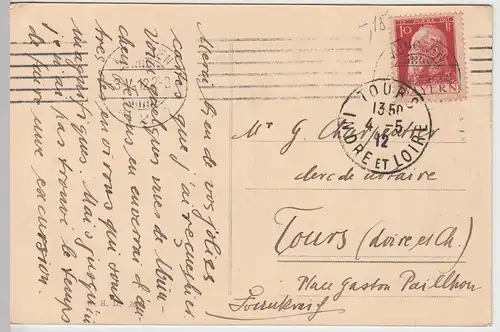 Merci bien de vos jolies
cartes que j'ai reçu hier.
Voici quelques vues de Mün-
chen. Je vous en enverrai d'au-
tres des environs qui sont
magnifiques. Mais jusqu'ici
je n'ai pas trouvé le temps
de faire une excursion.
10 BAYERN
TOURS
13 50
4 - 5
12
INDRE ET LOIRE
Mr G.
clerc de notaire
Tours (Loire et Ch.)
Place Gaston Pailhou
Frankreich